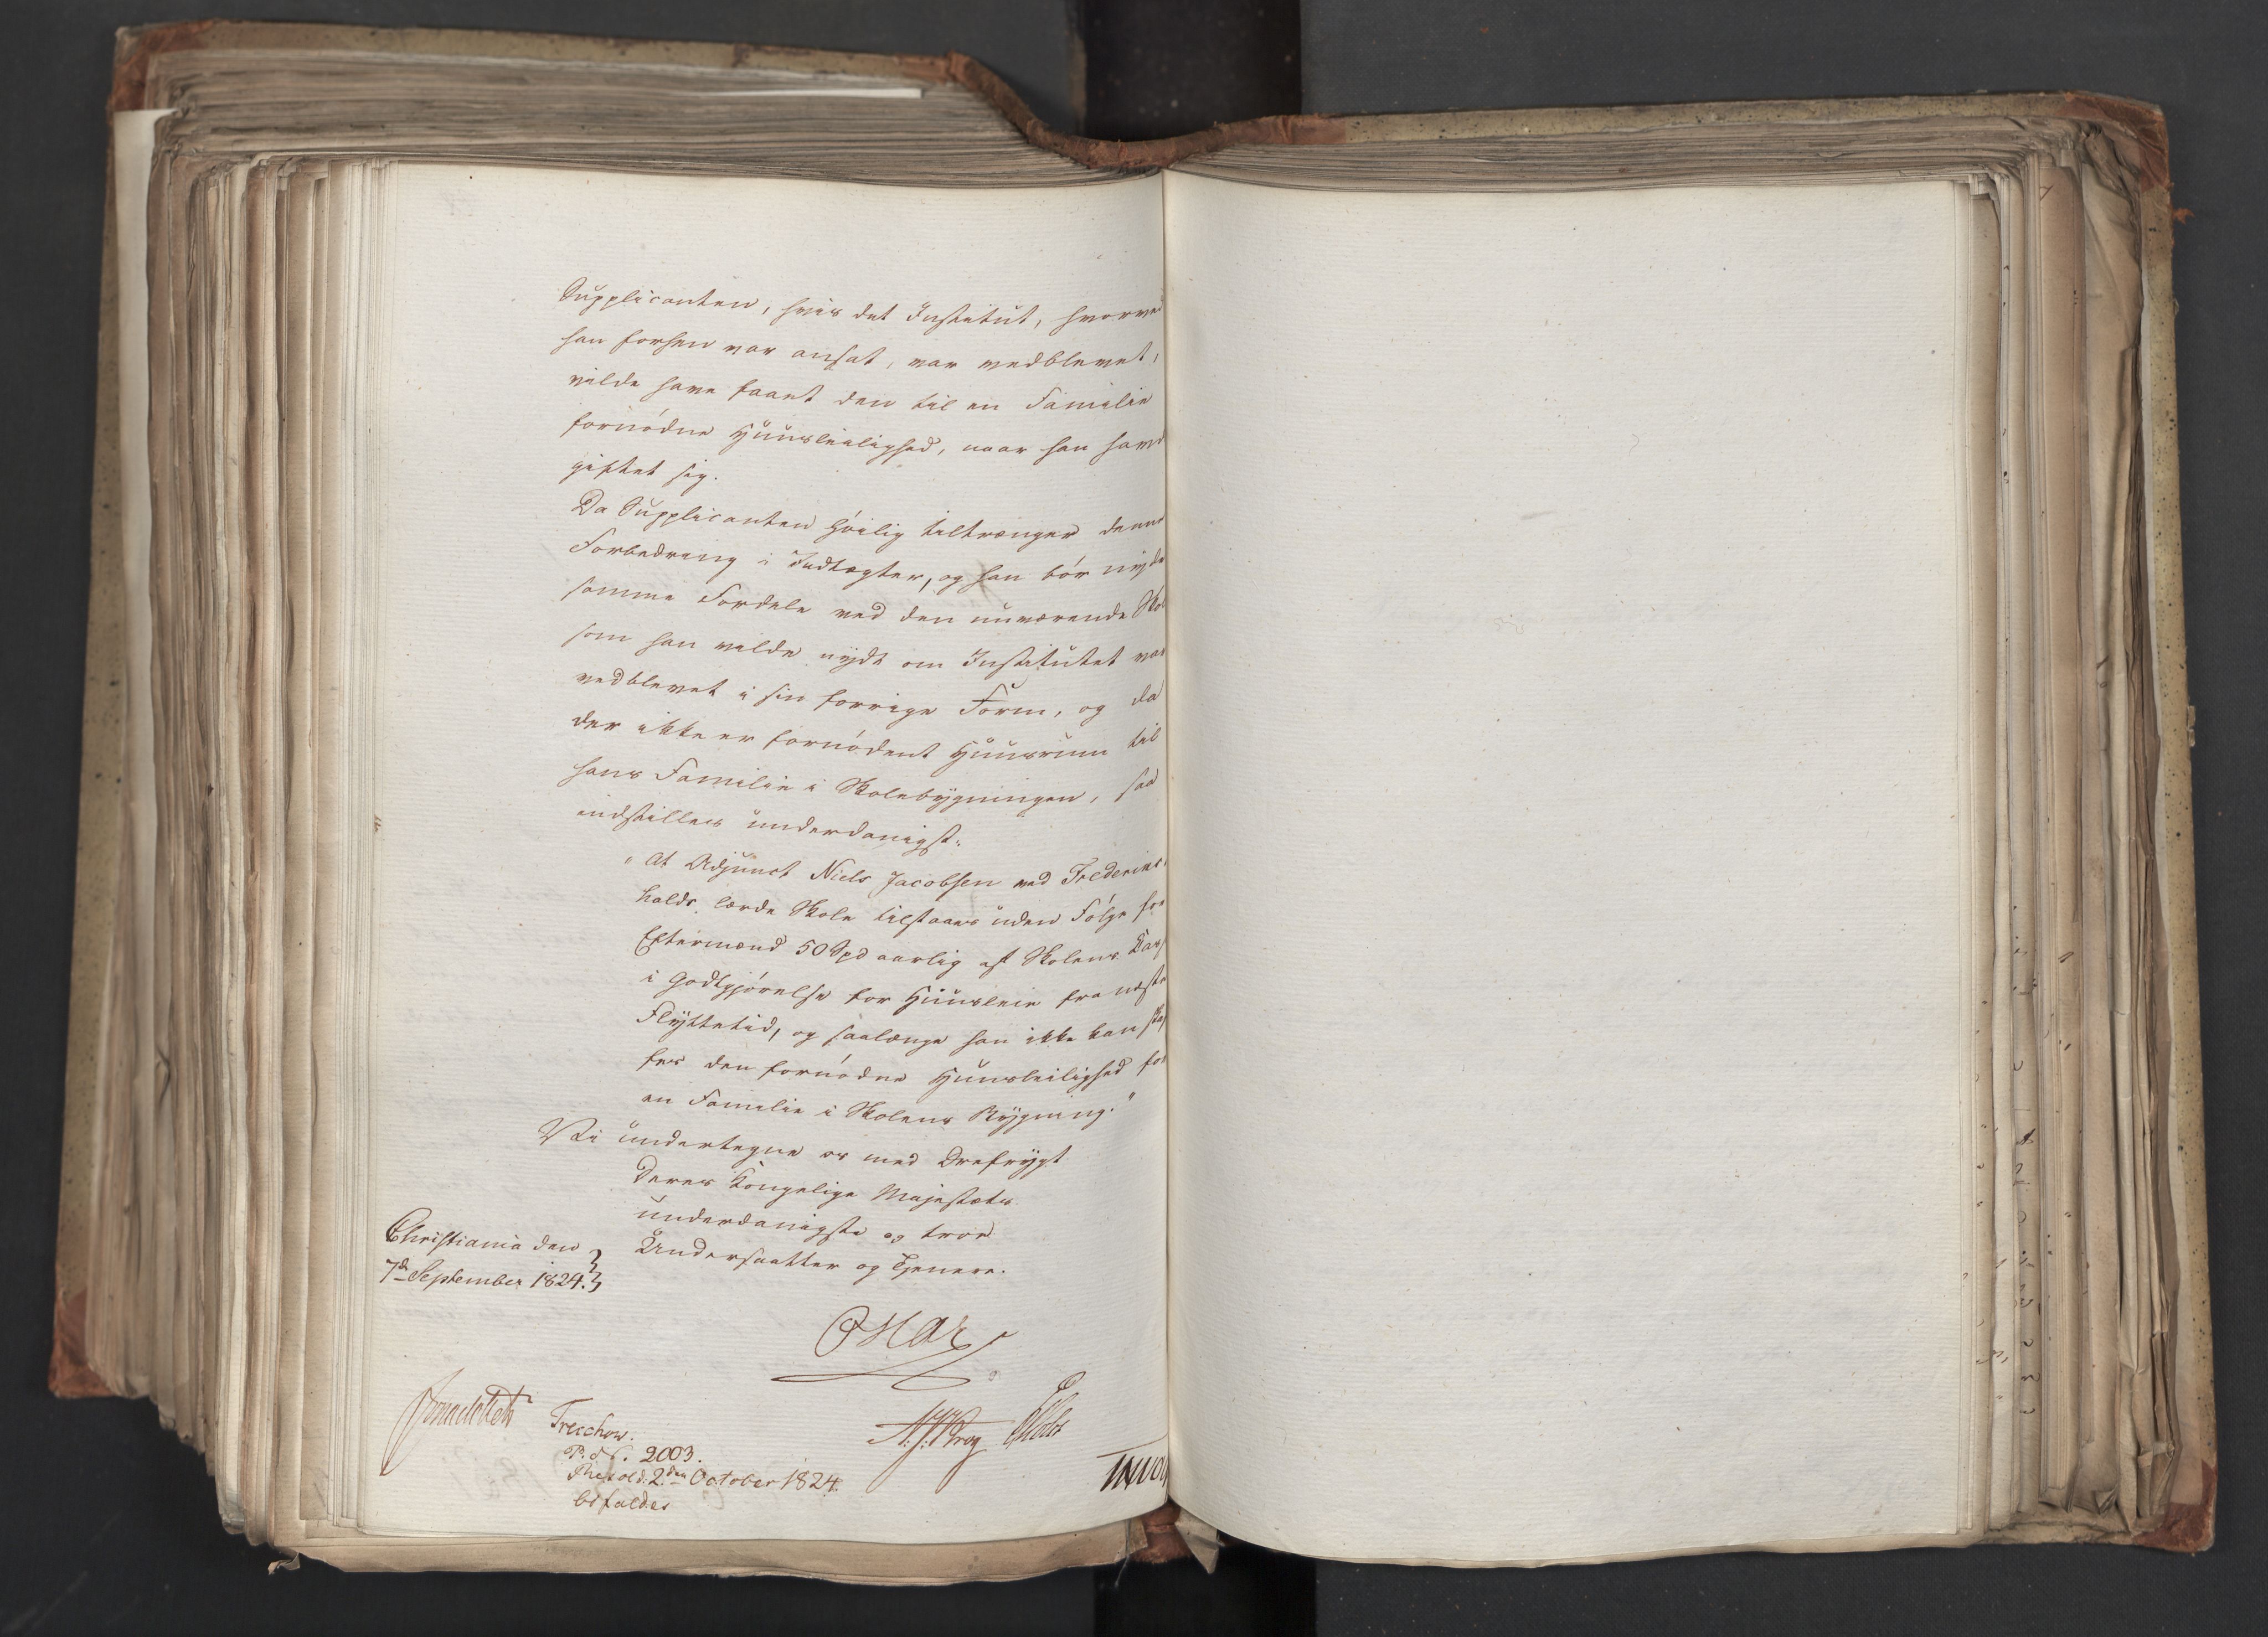 Supplicanten, hvis det Institut, hvorved
han forhen var ansat, var vedblevet,
vilde have faaet den til en Familie
fornødne Huusleilighed, naar han havd
giftet sig.
Da Supplicanten høilig tiltrænger denne
Forbedring i Indtægter, og han bør nyde
samme Fordele ved den nuværende Skol
som han vilde nydt om Institutet var
vedblevet i sin forrige Form, og da
der ikke er fornødent Huusrum til
hans Familie i Skolebygningen, saa
indstilles underdanigst:
"At Adjunct Niels Jacobsen ved Frederiks-
halds lærde Skole tilstaaes uden Følge for
Eftermænd 50 Spd aarlig af Skolens Kas
i Godtgjørelse for Huusleie fra næste
Flyttetid, og saalænge han ikke kan skaf
fes den fornødne Huusleilighed for
en Familie i Skolens Bygning."
Vi undertegne os med Ærefrygt
Deres Kongelige Majestæts
underdanigste og troe
Undersaatter og Tjenere.
Christiania den
7de September 1824.
Oscar
Treschow.
P. d. S. 2003.
Rhesol d: 2den October 1824.
bifaldes